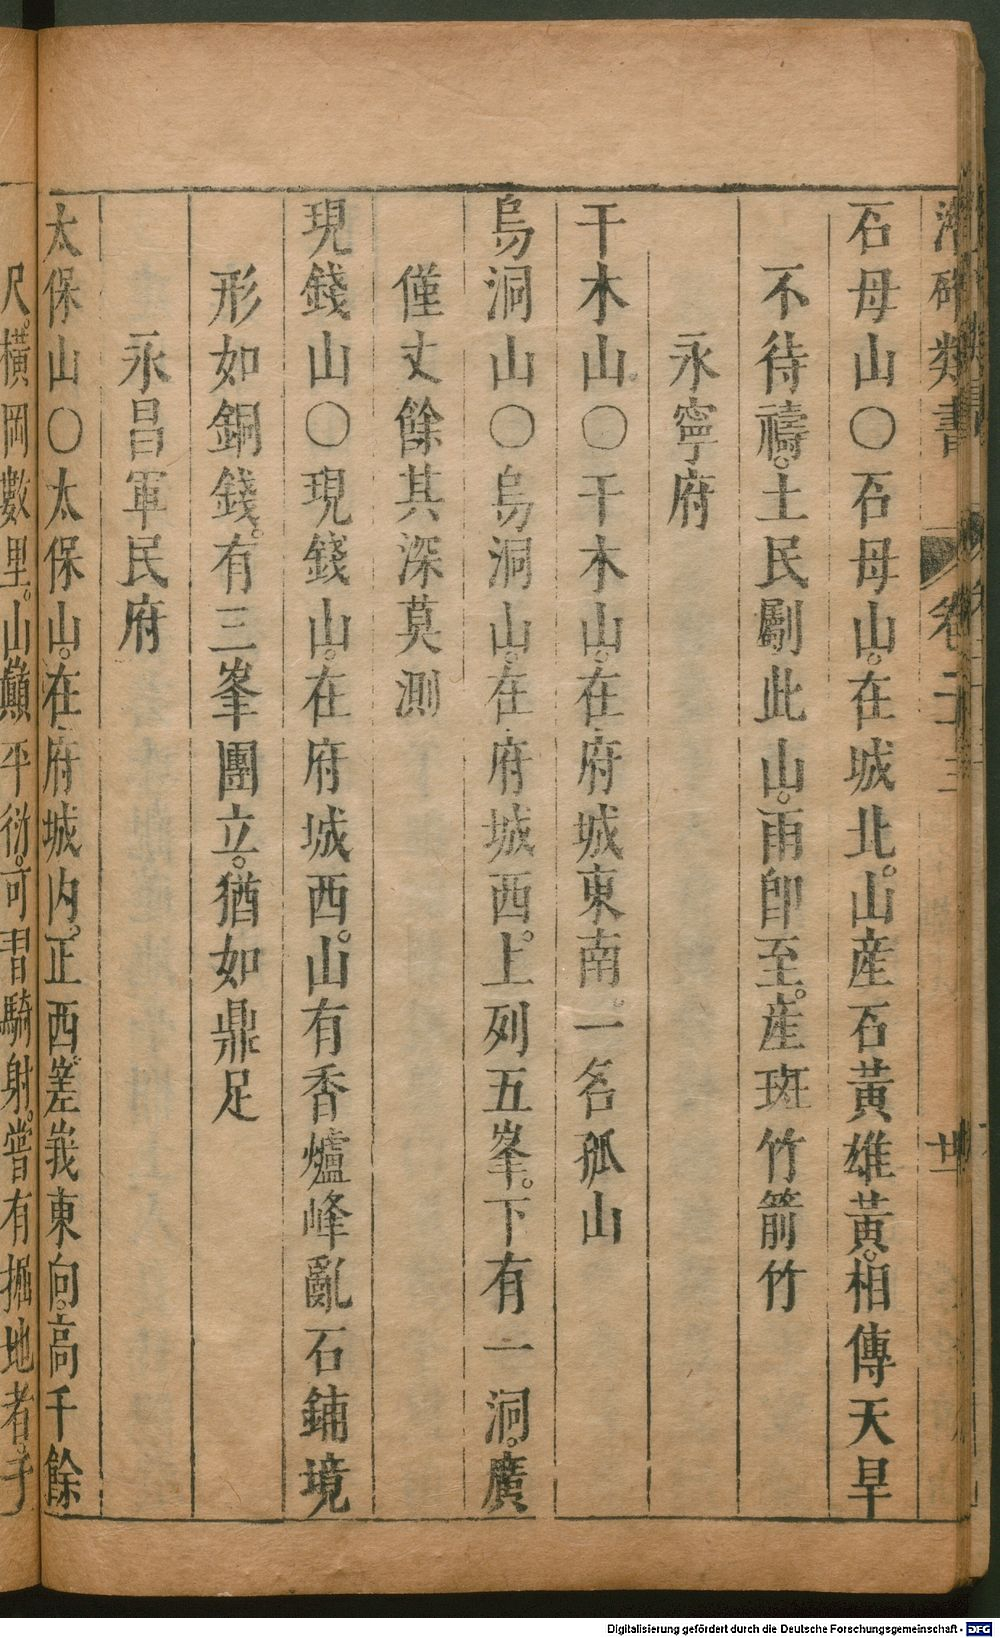 潛確類書 卷二十三 廿
石母山〇石母山。在城北。山產石黃雄黃。相傳天旱
不待禱。土民斸此山。雨卽至。產斑竹箭竹
永寧府
干木山〇干木山。在府城東南。一名孤山
烏洞山〇烏洞山。在府城西。上列五峯。下有一洞。廣
僅丈餘其深莫測
現錢山〇現錢山。在府城西。山有香爐峰亂石鋪境
形如銅錢。有三峯團立。猶如鼎足
永昌軍民府
太保山〇太保山。在府城內。正西。嵳峩東向。高千餘
尺。橫岡數里。山巔平衍。可習騎射。嘗有掘地者。于
Digitalisierung gefördert durch die Deutsche Forschungsgemeinschaft - DFG